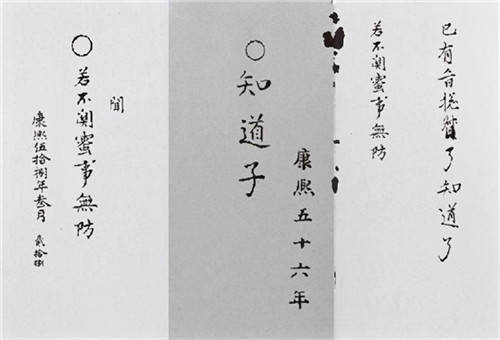 已有旨了知道了
若不蜜事無防
康熙五十六年
○知道子
聞
○若不蜜事無防
康熙伍拾捌年叁月 貳拾捌